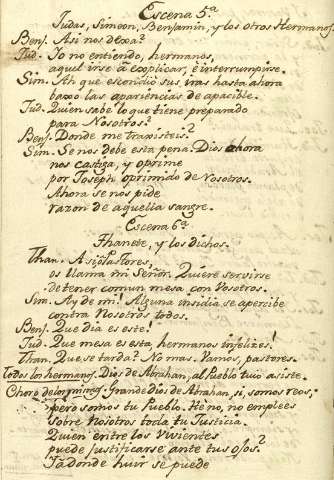 Escena 5ª
Judas, Simeon, Benjamin, y los otros Hermanos.
Benj. Asi nos dexa?
Jud. Yo no entiendo, hermanos,
aquel irse à explicar, è interrumpirse.
Sim. Ah que escondió sus iras hasta ahora
baxo las apariencias de apacible.
Jud. Quien sabe lo que tiene preparado
para Nosotros?
Benj. Donde me traxisteis?
Sim. Se nos debe esta pena: Dios ahora
nos castiga, y oprime
por Joseph oprimido de Nosotros.
Ahora se nos pide
razon de aquella sangre.
Escena 6ª
Thanete, y los dichos.
Than. A si Pastores,
os llama mi Señor. Quiere servirse
de tener comun mesa con Vosotros.
Sim. Ay de mi! Alguna insidia se apercibe
contra Nosotros todos.
Benj. Que dia es este!
Jud. Que mesa es esta, hermanos infelizes!
Than. Que se tarda? No mas. Vamos, pastores.
Todos los hermanos. Dios de Abrahan, al Pueblo tuio asiste.
Choro de los mismos. Grande dios de Abrahan, si, somos reos;
pero somos tu Pueblo. He no, no emplees
sobre Nosotros toda tu Justicia.
Quien entre los Vivientes
puede justificarse ante tus ojos?
Ya donde huir se puede